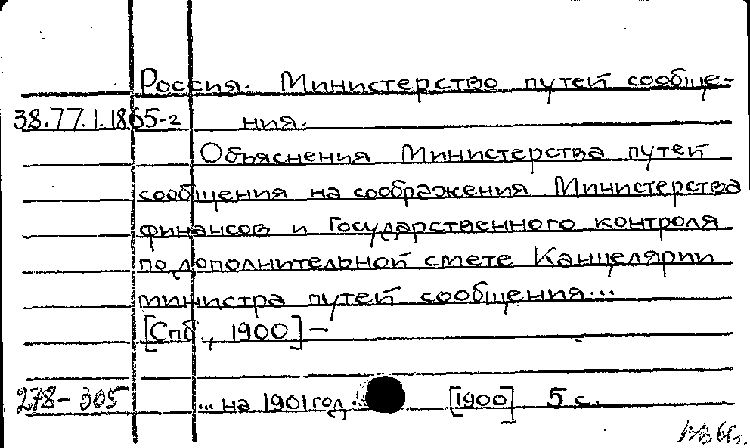 Россия. Министерство путей сообще-
38.77.1.1865-г ния.
Объяснения Министерства путей
сообщения на соображения Министерства
финансов и Государственного контроля
по дополнительной смете Канцелярии
министра путей сообщения...
[Спб, 1900] –
278-305 ...на 1901 год. [1900] 5 с.